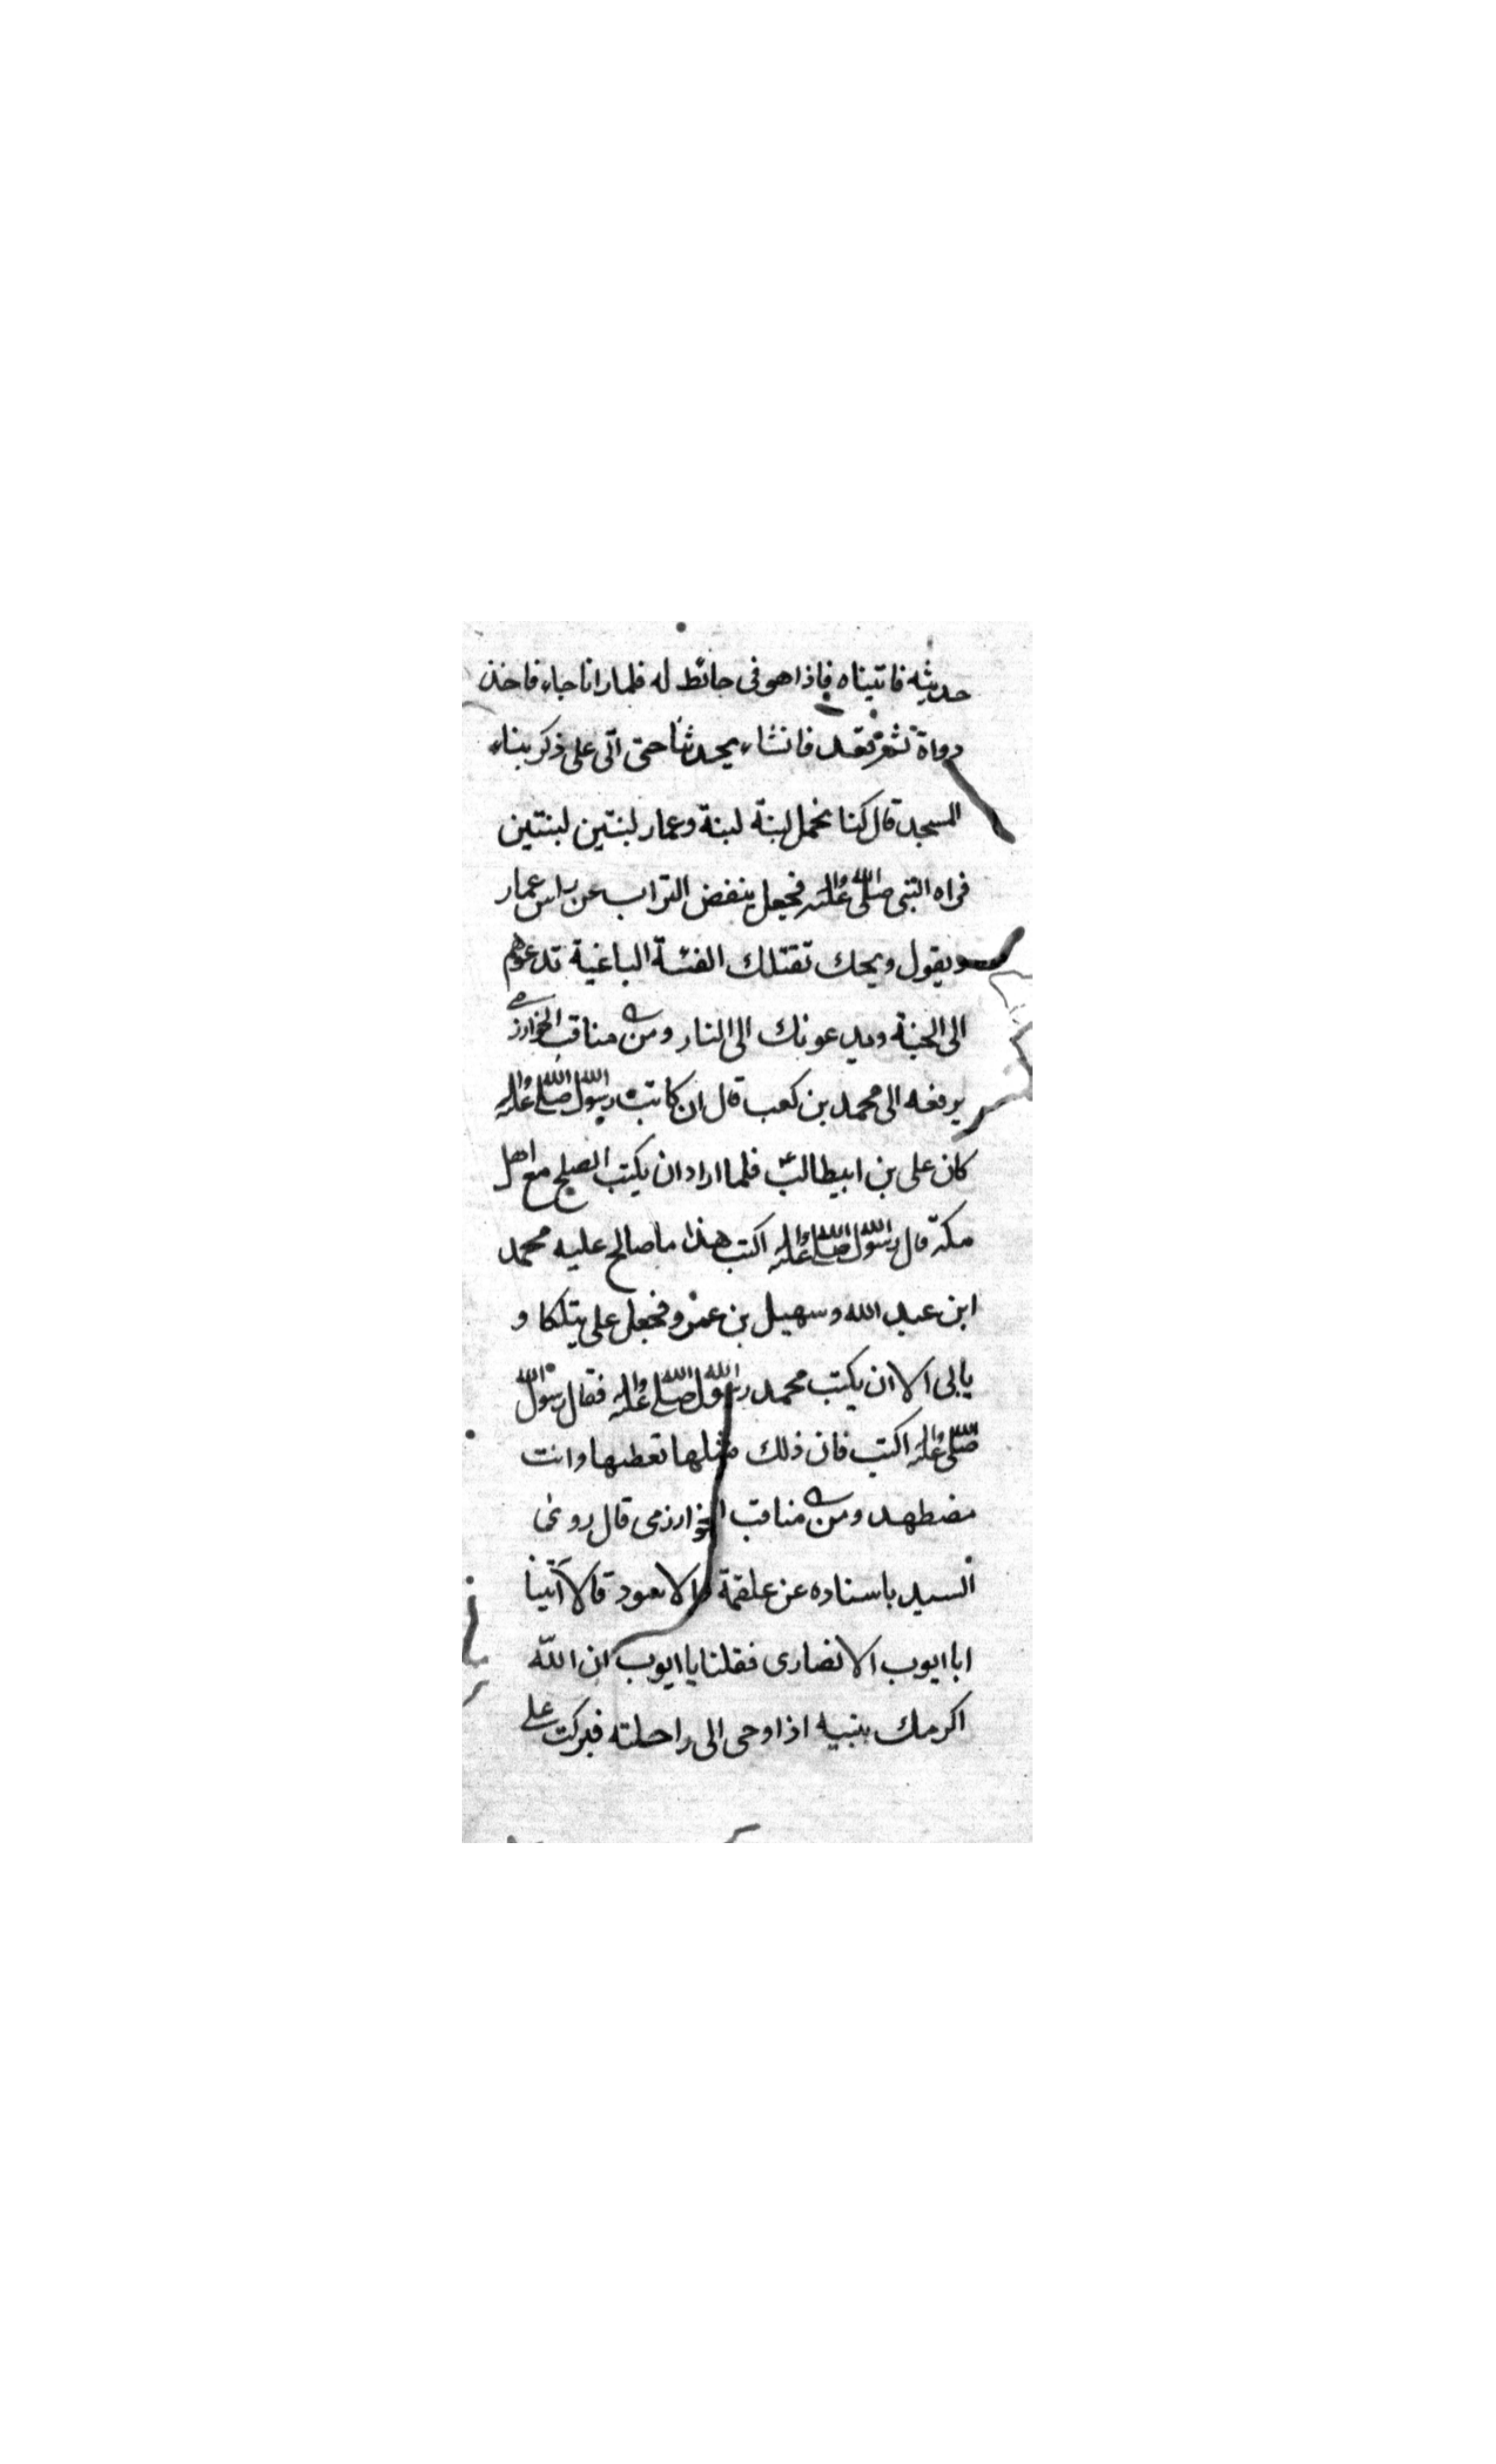 حديثه فاتيناه فاذا هو فى حائط له فلما رانا جاء فاخذ
دواة ثم قعد فانشاء يحدثنا حتى اتى على ذكر بناء
المسجد قال كنا نحمل لبنة لبنة وعمار لبنتين لبنتين
فراه النبى صلى الله عليه واله فجعل ينفض التراب عن راس عمار
ويقول ويحك تقتلك الفئة الباغية تدعوهم
الى الجنة ويدعونك الى النار ومن مناقب الخوارزمى
يرفعه الى محمد بن كعب قال ان كاتب رسول الله صلى الله عليه واله
كان على بن ابيطالب ع فلما اراد ان يكتب الصلح مع اهل
مكة قال رسول الله صلى الله عليه واله اكتب هذا ما صالح عليه محمد
ابن عبد الله وسهيل بن عمرو فجعل على يتلكا و
يابى الا ان يكتب محمد رسول الله صلى الله عليه واله فقال رسول الله
صلى الله عليه واله اكتب فان ذلك مثلها تعطيها وانت
مضطهد ومن مناقب الخوارزمى قال روى
السيد باسناده عن علقمة والاسود قالا اتينا
ابا ايوب الانصارى فقلنا يا ايوب ان الله
اكرمك بنبيه اذ اوحى الى راحلته فبركت على